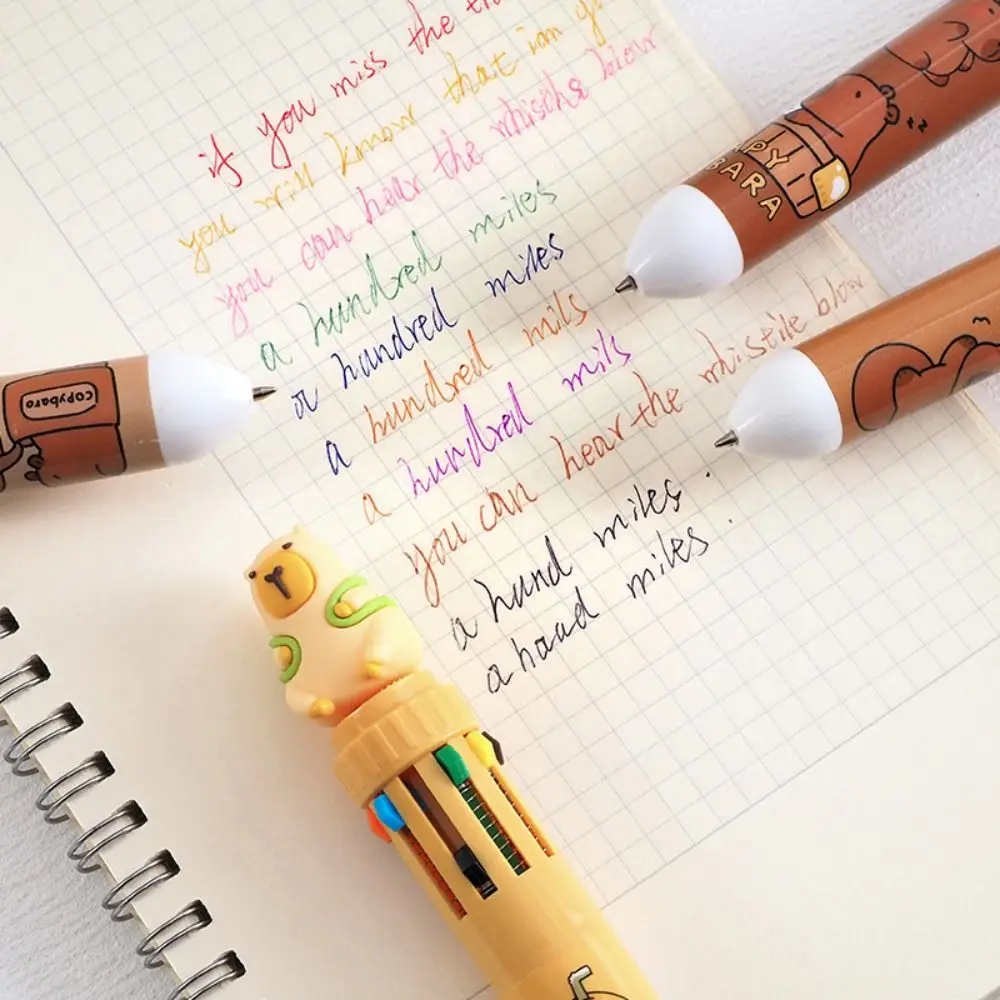 if you miss the
you will know that iam
you can hear the whischs blow
a hundred miles
a handred miles
a hundred mils
a hundred mils
you can hear the whiseile blow
a hund miles.
a haud miles.
BARA
copybaro